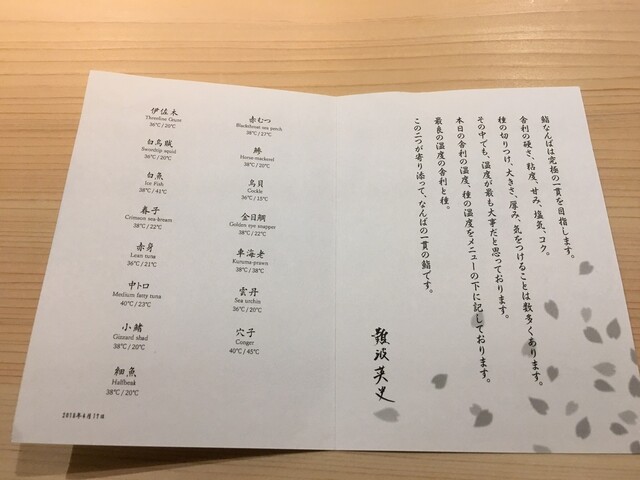 伊佐木
Threeline Grunt
36℃/20℃
白烏賊
Swordtip squid
36℃/20℃
白魚
Ice Fish
38℃/41℃
春子
Crimson sea-bream
38℃/22℃
赤身
Lean tuna
36℃/21℃
中トロ
Medium fatty tuna
40℃/23℃
小鰭
Gizzard shad
38℃/20℃
細魚
Halfbeak
38℃/20℃
赤むつ
Blackthroat sea perch
38℃/27℃
鯵
Horse-mackerel
38℃/20℃
鳥貝
Cockle
36℃/15℃
金目鯛
Golden eye snapper
38℃/22℃
車海老
Kuruma-prawn
38℃/38℃
雲丹
Sea urchin
36℃/20℃
穴子
Conger
40℃/45℃
2018年4月17日
鮨なんばは究極の一貫を目指します。
舎利の硬さ、粘度、甘み、塩気、コク。
種の切りつけ、大きさ、厚み、気をつけることは数多くあります。
その中でも、温度が最も大事だと思っております。
本日の舎利の温度、種の温度をメニューの下に記しております。
最良の温度の舎利と種。
この二つが寄り添って、なんばの一貫の鮨です。
難波英史